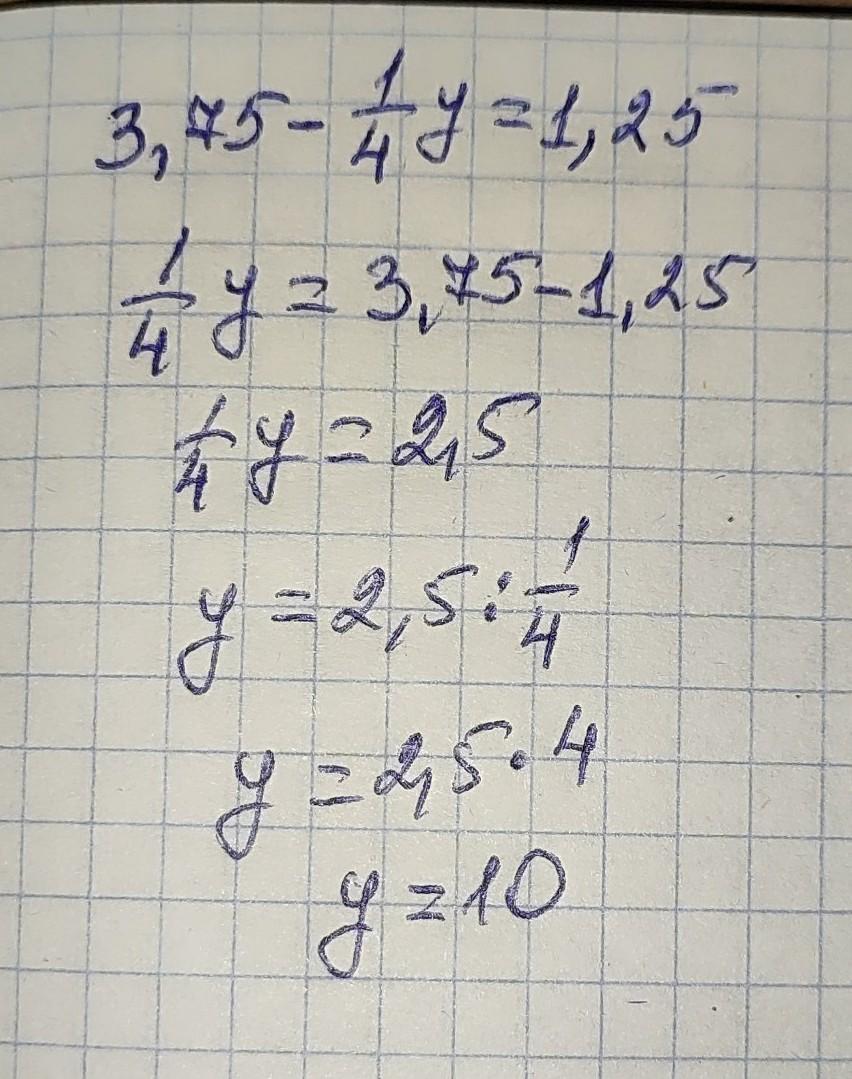 3,75 - 1/4 y = 1,25
1/4 y = 3,75 - 1,25
1/4 y = 2,5
y = 2,5 : 1/4
y = 2,5 · 4
y = 10